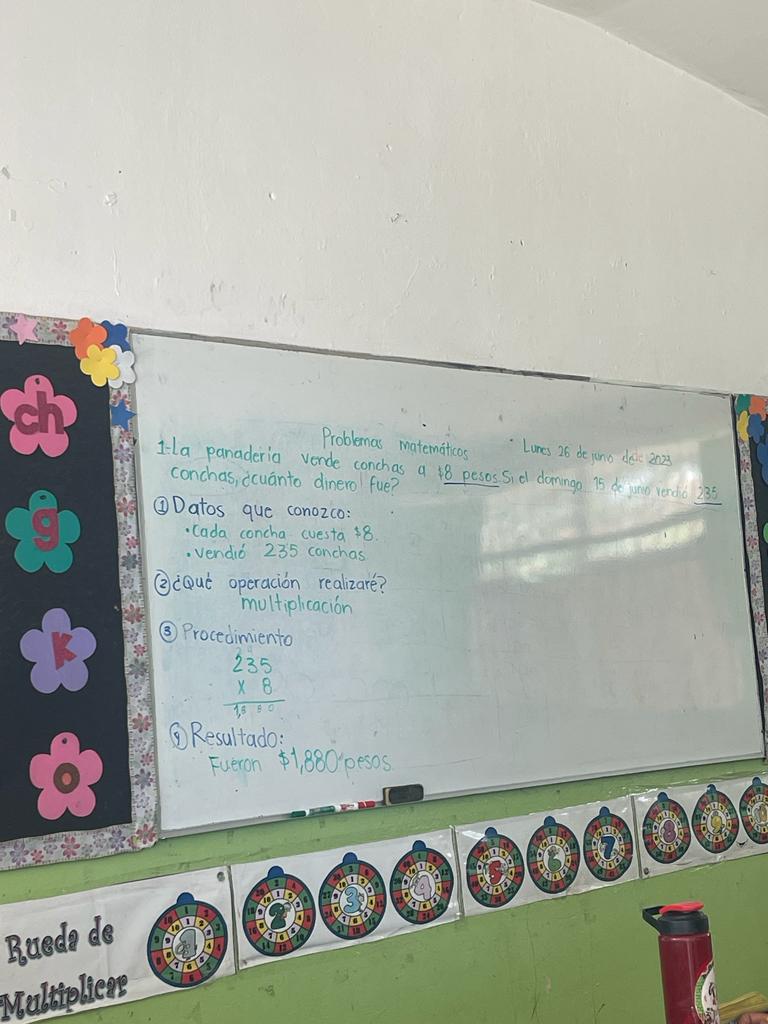 Problemas matemáticos
Lunes 26 de junio de 2023
1-La panadería vende conchas a $8 pesos. Si el domingo 15 de junio vendió 235
conchas, ¿cuánto dinero fue?
① Datos que conozco:
• Cada concha cuesta $8.
• vendió 235 conchas
② ¿Qué operación realizaré?
multiplicación
③ Procedimiento
235
x 8
1,880
④ Resultado:
Fueron $1,880 pesos
ch
g
k
o
Rueda de
Multiplicar
1
2
3
4
5
6
7
8
9
10